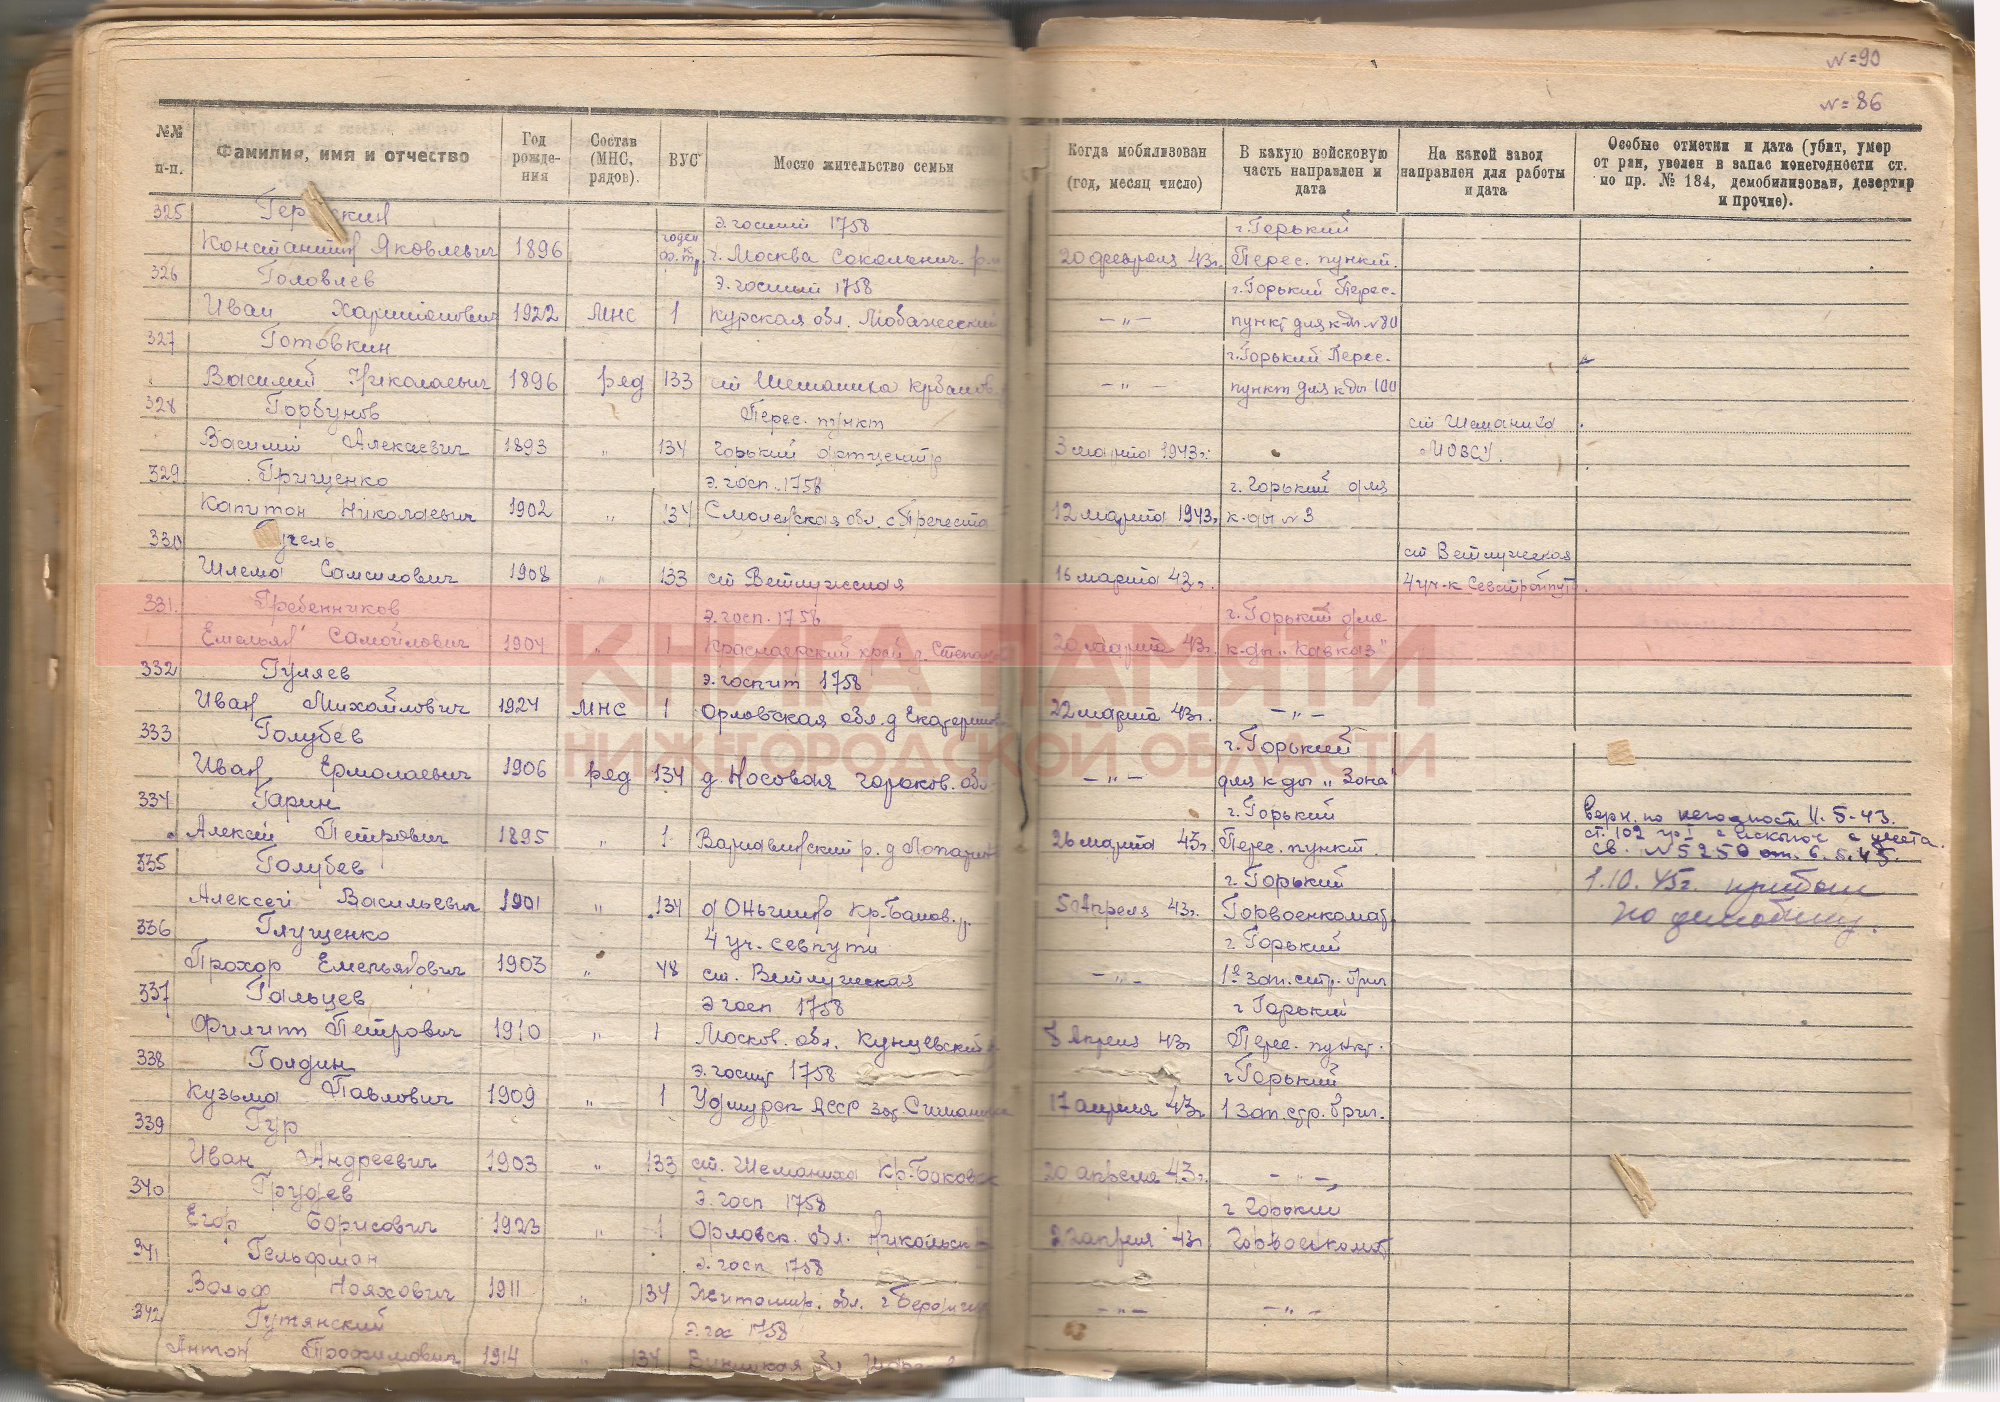 №=90
№=86
№№ п-п. Фамилия, имя и отчество Год рожде-ния Состав (МНС, рядов). ВУС Место жительство семьи Когда мобилизован (год, месяц число) В какую войсковую часть направлен и дата На какой завод направлен для работы и дата Особые отметки и дата (убит, умер от ран, уволен в запас по негодности ст. по пр. № 184, демобилизован, дезертир и прочие).
325 э.госпит 1758 г.Горький
Константин Яковлевич 1896 годен к г. Москва Сокольнич. 20 февраля 43г. Перес. пункт.
326 Головлев э.госпит 1758 г.Горький Перес.
Иван Харитонович 1922 МНС 1 Курская обл. —"— пункт для к-ды №80
327 Готовкин г.Горький Перес.
Василий Николаевич 1896 ряд 133 ст Шеманиха —"— пункт для к-ды 100
328 Горбунов Перес. пункт ст Шеманиха
Василий Алексеевич 1893 " 134 Горький 3 марта 1943г.
329 Грищенко э.госп. 1758 г. Горький для
Капитон Николаевич 1902 " 134 Смоленская обл. 12 марта 1943г. к-ды №3
330 ст Ветлужская
Шлема Самилович 1908 " 133 ст Ветлужская 16 марта 43г. 4 уч-к
331. Гребенников э.госп. 1758 г.Горький для
Емельян Самойлович 1904 " 1 край г. 20 марта 43г. к-ды "Кавказ"
КНИГА ПАМЯТИ
332 Гуляев э.госпит 1758
Иван Михайлович 1924 МНС 1 Орловская обл. д 22 марта 43г. —"—
333 Голубев г.Горький
НИЖЕГОРОДСКОЙ ОБЛАСТИ
Иван Ермолаевич 1906 ряд 134 д. Носовая горьков. обл —"— для к-ды "Зона"
334 Гарин г.Горький верн. по негодности 11.5-43.
Алексей Петрович 1895 " 1 Варнавинский р. д 26 марта 43г. Перес. пункт. ст. 102 с исключ с учета.
335 Голубев г.Горький св. №5250 от. 6.5.43.
Алексей Васильевич 1901 " 134 5 Апреля 43г. Горвоенкомат 1.10.45г. прибыл
336 Глущенко 4 уч. севпути г Горький по демобилиз.
Прохор Емельянович 1903 " 48 ст. Ветлужская —"— 1й зап. стр. бриг
337 Гальцев э госп 1758 г Горький
Филипп Петрович 1910 " 1 Москов. обл. Кунцевский 8 Апреля 43г Перес. пункт.
338 Голдин э.госпит 1758 г Горький
Кузьма Павлович 1909 " 1 Удмурск АССР 17 апреля 43г 1 зап. стр. бриг.
339 Гур
Иван Андреевич 1903 " 133 ст. Шеманиха Кр-Баковск 20 апреля 43г. —"—
340 э. госп 1758 г Горький
Егор Борисович 1923 " 1 Орловск. обл. 22 апреля 43г Горвоенкомат
341 Гельфман э. госп 1758
Вольф Нояхович 1911 " 134 Житомир. обл. —"— —"—
342 Гутянский э.гос 1758
Антон Трофимович 1914 " 134